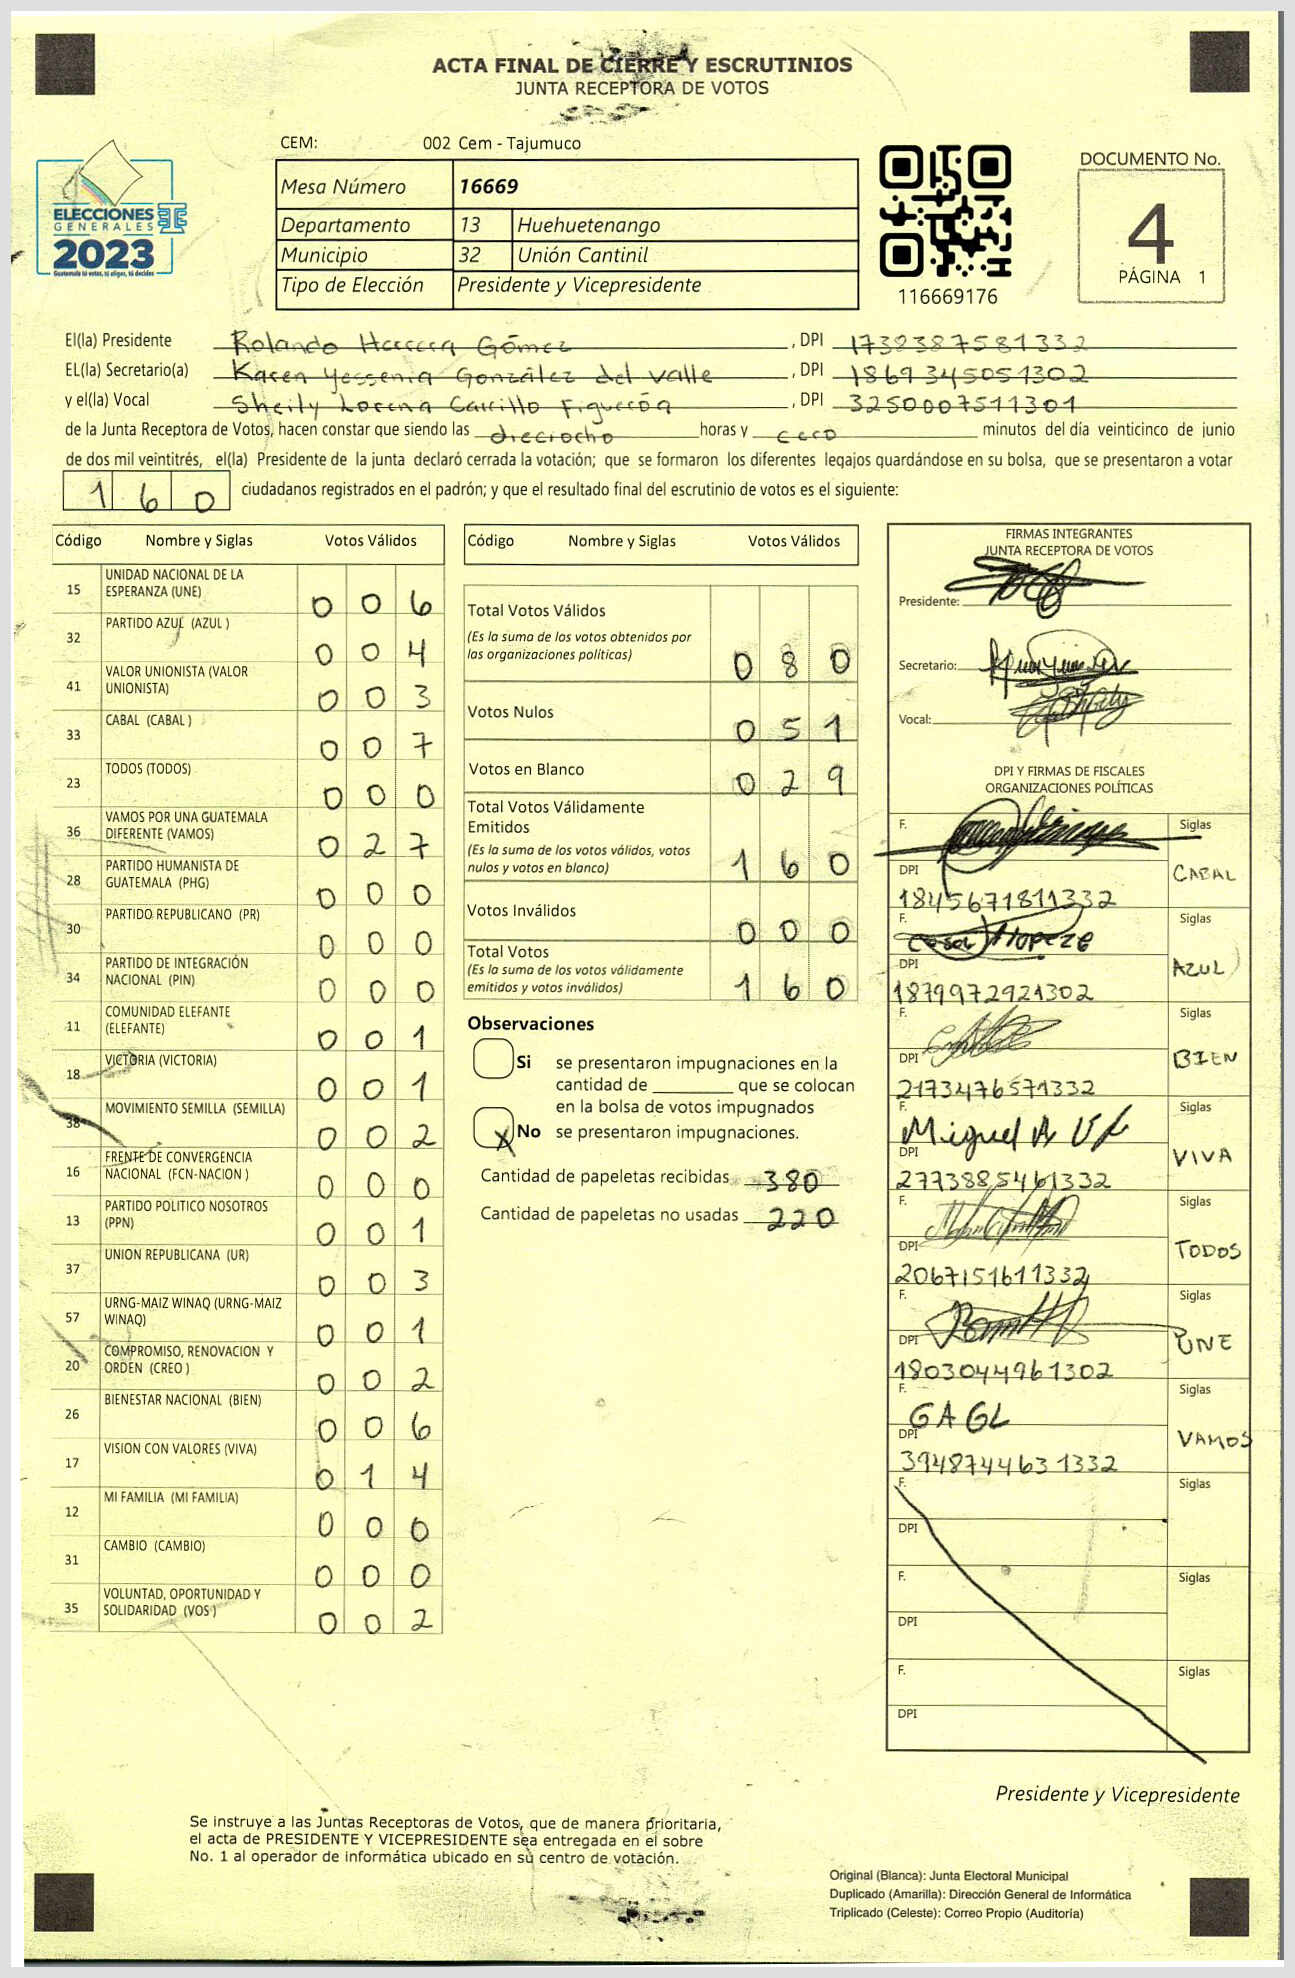 ACTA FINAL DE CIERRE Y ESCRUTINIOS
JUNTA RECEPTORA DE VOTOS
CEM: 002 Cem - Tajumuco
ELECCIONES
GENERALES
2023
Guatemala tú votas, tú eliges, tú decides
Mesa Número 16669
Departamento 13 Huehuetenango
Municipio 32 Unión Cantinil
Tipo de Elección Presidente y Vicepresidente
116669176
DOCUMENTO No.
4
PÁGINA 1
El(la) Presidente Rolando Herrera Gómez, DPI 1738387581332
EL(la) Secretario(a) Karen Yessenia González del Valle, DPI 1869345051302
y el(la) Vocal Sheily Lorena Carrillo Figueróa, DPI 3250007511301
de la Junta Receptora de Votos, hacen constar que siendo las dieciocho horas y cero minutos del día veinticinco de junio
de dos mil veintitrés, el(la) Presidente de la junta declaró cerrada la votación; que se formaron los diferentes legajos quardándose en su bolsa, que se presentaron a votar
160 ciudadanos registrados en el padrón; y que el resultado final del escrutinio de votos es el siguiente:
Código Nombre y Siglas Votos Válidos
15 UNIDAD NACIONAL DE LA ESPERANZA (UNE) 006
32 PARTIDO AZUL (AZUL ) 004
41 VALOR UNIONISTA (VALOR UNIONISTA) 003
33 CABAL (CABAL ) 007
23 TODOS (TODOS) 000
36 VAMOS POR UNA GUATEMALA DIFERENTE (VAMOS) 027
28 PARTIDO HUMANISTA DE GUATEMALA (PHG) 000
30 PARTIDO REPUBLICANO (PR) 000
34 PARTIDO DE INTEGRACIÓN NACIONAL (PIN) 000
11 COMUNIDAD ELEFANTE (ELEFANTE) 001
18 VICTORIA (VICTORIA) 001
38 MOVIMIENTO SEMILLA (SEMILLA) 002
16 FRENTE DE CONVERGENCIA NACIONAL (FCN-NACION ) 000
13 PARTIDO POLITICO NOSOTROS (PPN) 001
37 UNION REPUBLICANA (UR) 003
57 URNG-MAIZ WINAQ (URNG-MAIZ WINAQ) 001
20 COMPROMISO, RENOVACION Y ORDEN (CREO ) 002
26 BIENESTAR NACIONAL (BIEN) 006
17 VISION CON VALORES (VIVA) 014
12 MI FAMILIA (MI FAMILIA) 000
31 CAMBIO (CAMBIO) 000
35 VOLUNTAD, OPORTUNIDAD Y SOLIDARIDAD (VOS ) 002
Código Nombre y Siglas Votos Válidos
Total Votos Válidos 080
(Es la suma de los votos obtenidos por
las organizaciones políticas)
Votos Nulos 051
Votos en Blanco 029
Total Votos Válidamente
Emitidos 160
(Es la suma de los votos válidos, votos
nulos y votos en blanco)
Votos Inválidos 000
Total Votos 160
(Es la suma de los votos válidamente
emitidos y votos inválidos)
Observaciones
Si se presentaron impugnaciones en la
cantidad de ________ que se colocan
en la bolsa de votos impugnados
X No se presentaron impugnaciones.
Cantidad de papeletas recibidas 380
Cantidad de papeletas no usadas 220
FIRMAS INTEGRANTES
JUNTA RECEPTORA DE VOTOS
Presidente:
Secretario:
Vocal:
DPI Y FIRMAS DE FISCALES
ORGANIZACIONES POLÍTICAS
F. Siglas
DPI CABAL
1845671811332
F. Siglas
DPI AZUL
1879972921302
F. Siglas
DPI BIEN
2173476571332
F. Siglas
Miguel A
DPI VIVA
2773885461332
F. Siglas
DPI TODOS
2067151611332
F. Siglas
DPI UNE
1803044961302
F. Siglas
GAGL
DPI VAMOS
3948744631332
F. Siglas
DPI
F. Siglas
DPI
F. Siglas
DPI
Presidente y Vicepresidente
Se instruye a las Juntas Receptoras de Votos, que de manera prioritaria,
el acta de PRESIDENTE Y VICEPRESIDENTE sea entregada en el sobre
No. 1 al operador de informática ubicado en su centro de votación.
Original (Blanca): Junta Electoral Municipal
Duplicado (Amarilla): Dirección General de Informática
Triplicado (Celeste): Correo Propio (Auditoría)